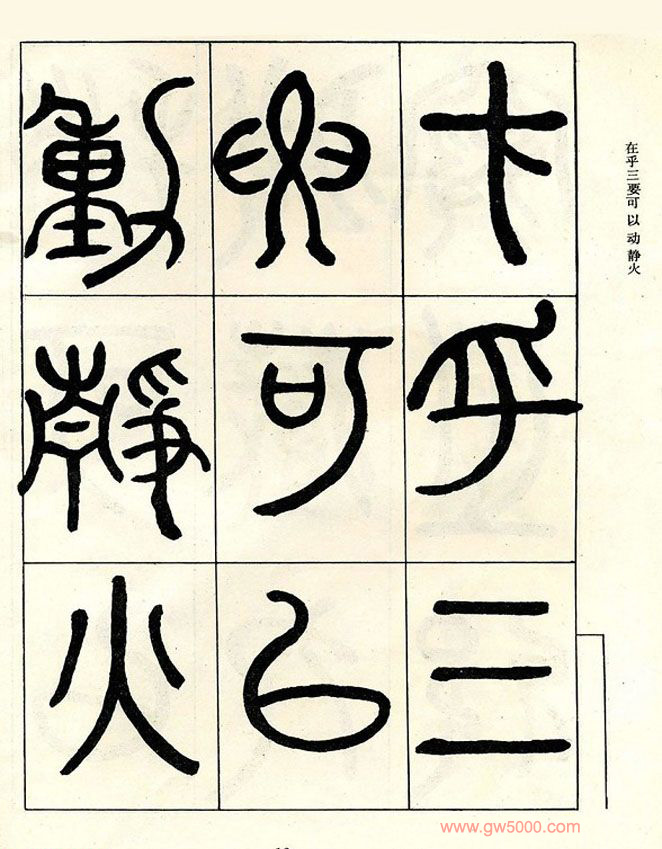 在乎三要可以动静火
在乎三
要可以
動静火
www.gw5000.com